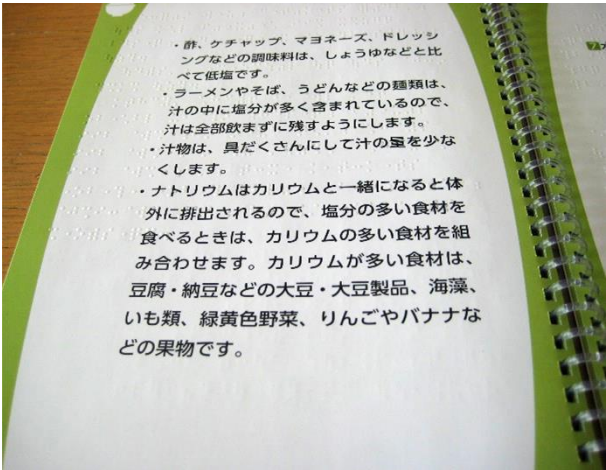 ・酢、ケチャップ、マヨネーズ、ドレッシ
ングなどの調味料は、しょうゆなどと比
べて低塩です。
・ラーメンやそば、うどんなどの麺類は、
汁の中に塩分が多く含まれているので、
汁は全部飲まずに残すようにします。
・汁物は、具だくさんにして汁の量を少な
くします。
・ナトリウムはカリウムと一緒になると体
外に排出されるので、塩分の多い食材を
食べるときは、カリウムの多い食材を組
み合わせます。カリウムが多い食材は、
豆腐・納豆などの大豆・大豆製品、海藻、
いも類、緑黄色野菜、りんごやバナナな
どの果物です。